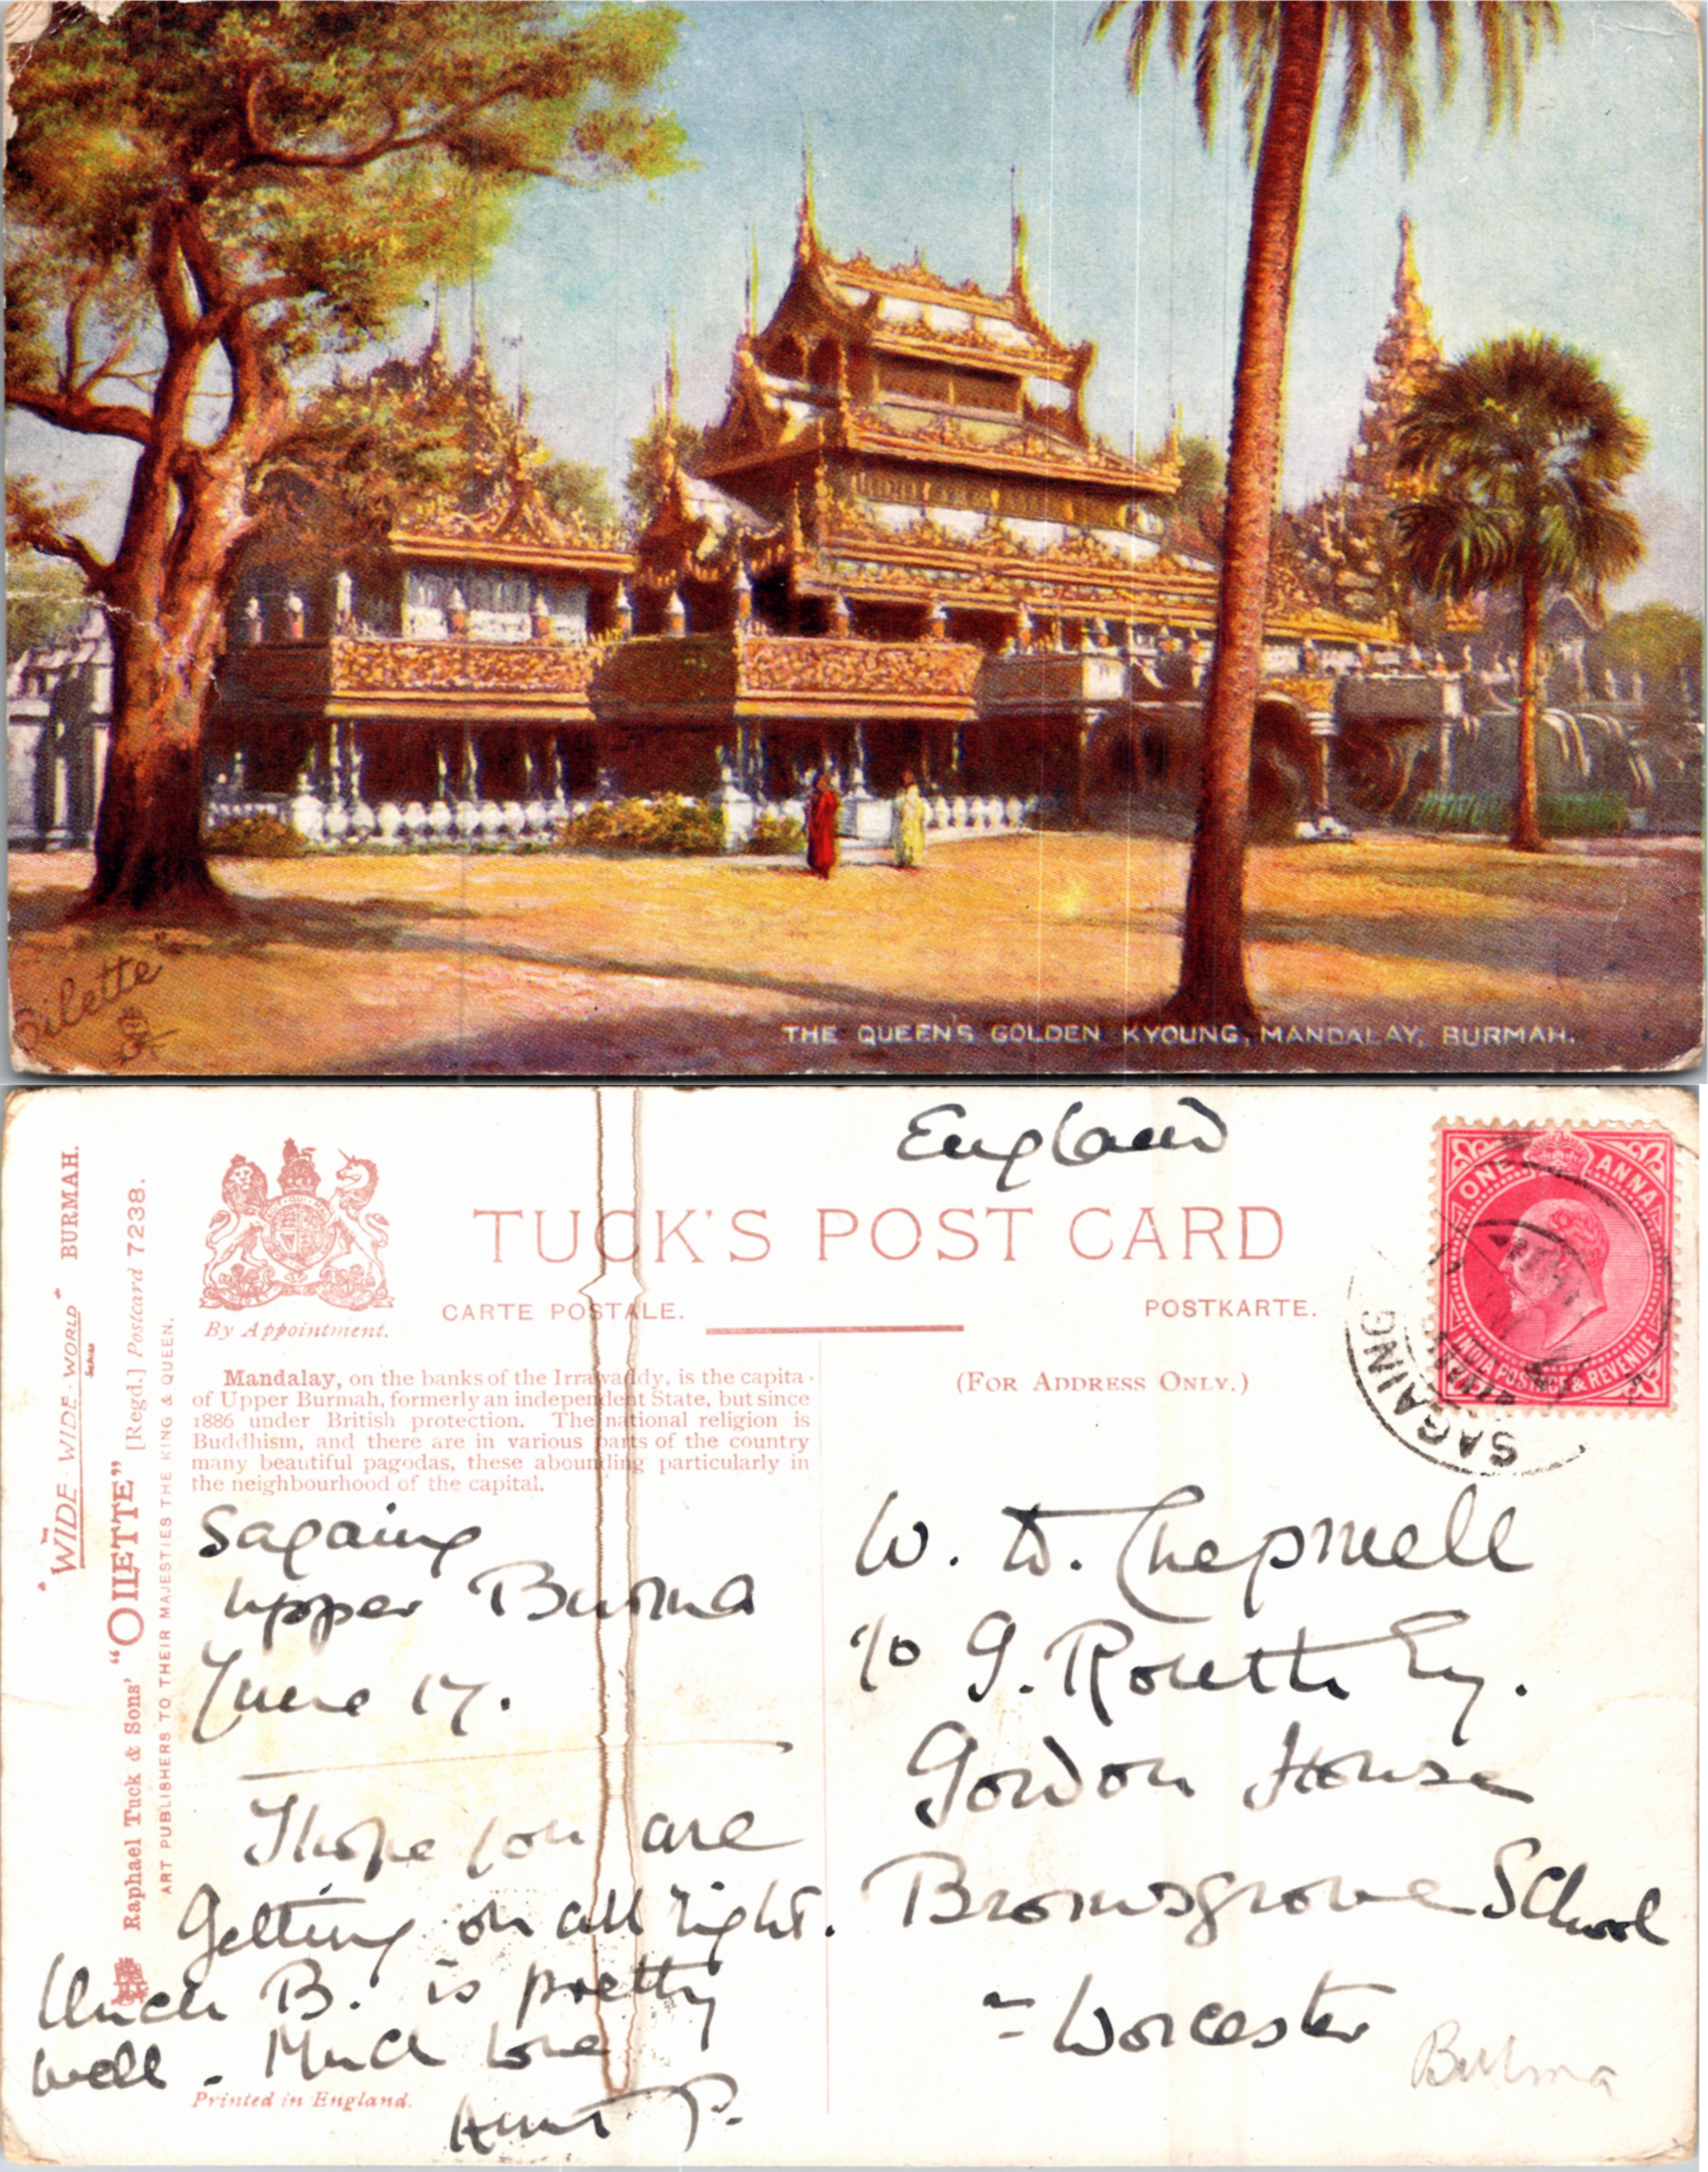 Oilette
THE QUEEN'S GOLDEN KYOUNG, MANDALAY, BURMAH.
England
TUCK'S POST CARD
CARTE POSTALE.
POSTKARTE.
By Appointment.
ONE ANNA
INDIA POSTAGE & REVENUE
SAGAING
"WIDE-WIDE-WORLD" BURMAH.
SERIES
Raphael Tuck & Sons' "OILETTE" [Regd.] Postcard 7238.
ART PUBLISHERS TO THEIR MAJESTIES THE KING & QUEEN.
Mandalay, on the banks of the Irrawaddy, is the capita
of Upper Burmah, formerly an independent State, but since
1886 under British protection. The national religion is
Buddhism, and there are in various parts of the country
many beautiful pagodas, these abounding particularly in
the neighbourhood of the capital.
(FOR ADDRESS ONLY.)
Sagaing
Upper Burma
June 17.
I hope you are
getting on all right.
Uncle B. is pretty
well. Much love
Aunt P.
Printed in England.
W. D. Chepmell
c/o G. Routh Esq.
Gordon House
Bromsgrove School
Worcester
Burma